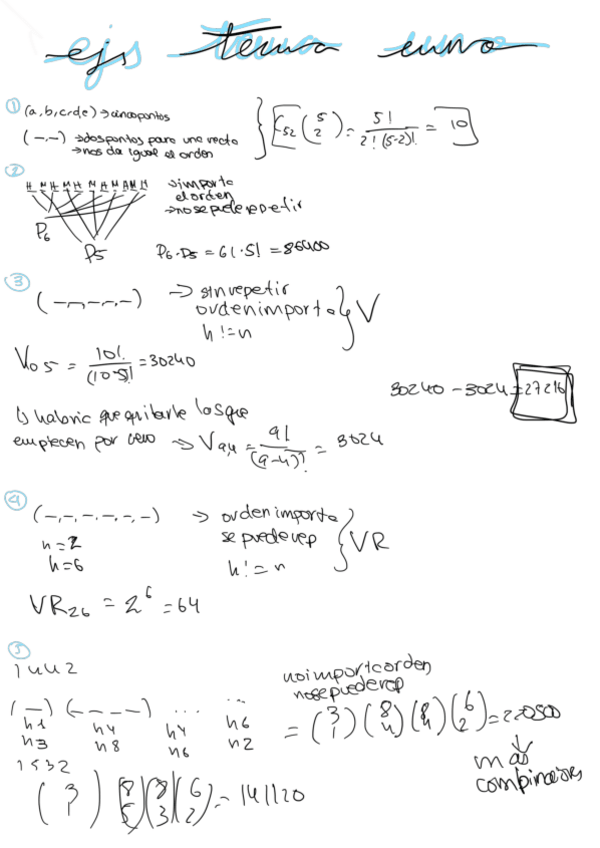 ejs tema uno
① (a,b,c,d,e) → cinco puntos
(–,–) → dos puntos para una recta
→ nos da igual el orden
C₅₂ (5 2) = 5! / 2!(5-2)! = 10
②
H M H M H M H M H M H
→ importa
el orden
→ no se puede repetir
P₆
P₅
P₆·P₅ = 6!·5! = 86400
③
(–,–,–,–,–) → sin repetir
orden importa } V
h != n
V₁₀ ₅ = 10! / (10-5)! = 30240
30240 - 3024 = 27216
↳ habría que quitarle los que
empiecen por cero ⇒ V₉,₄ = 9! / (9-4)! = 3024
④
(–,–,–,–,–,–) → orden importa
n=2 se puede rep } VR
h=6 h != n
VR₂₆ = 2⁶ = 64
⑤
1 4 4 2
no importa orden
no se puede rep
(–) (– – – –) ... ...
h1 h4 h4 h6
n3 n8 n6 n2
= (3 1) (8 4) (8 4) (6 2) = 220500
↓
más
combinaciones
1 5 3 2
(3 1) (8 5) (8 3) (6 2) = 141120